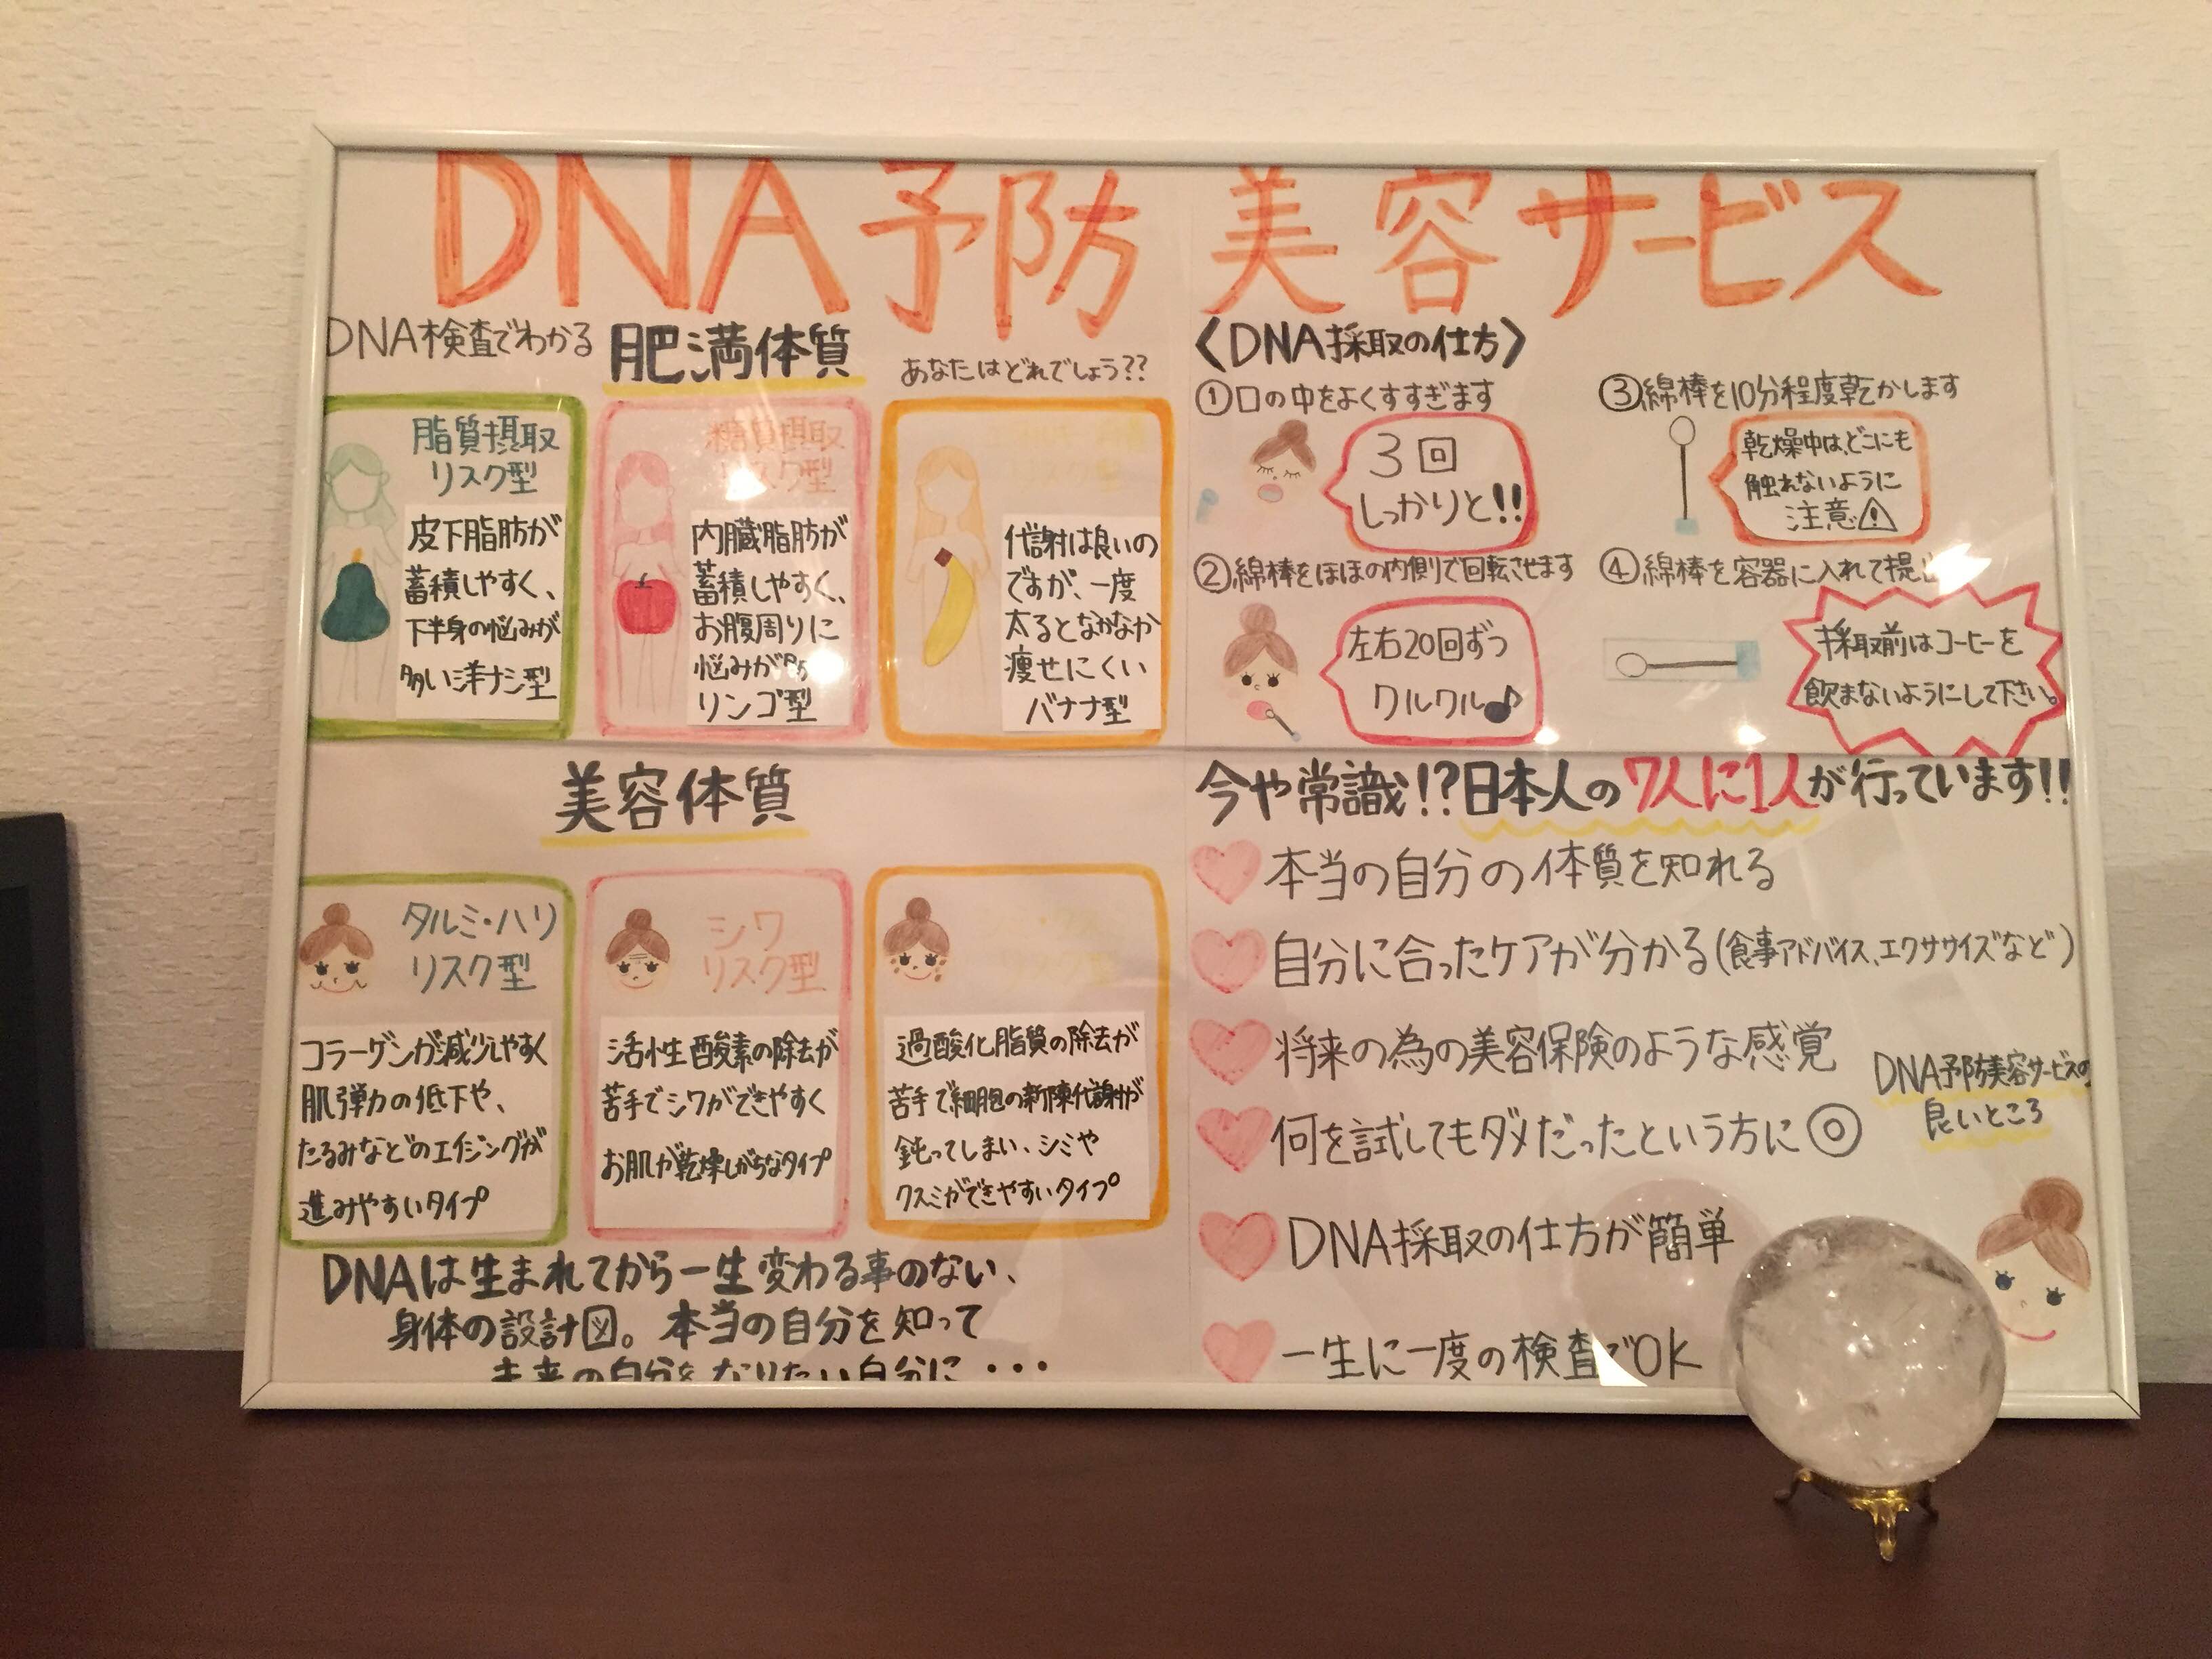 DNA予防美容サービス
DNA検査でわかる 肥満体質
あなたはどれでしょう??
脂質摂取
リスク型
皮下脂肪が
蓄積しやすく、
下半身の悩みが
多い洋ナシ型
糖質摂取
リスク型
内臓脂肪が
蓄積しやすく、
お腹周りに
悩みが多い
リンゴ型
代謝は良いの
ですが、一度
太るとなかなか
痩せにくい
バナナ型
〈DNA採取の仕方〉
①口の中をよくすすぎます
3回
しっかりと!!
②綿棒をほほの内側で回転させます
左右20回ずつ
クルクル♪
③綿棒を10分程度乾かします
乾燥中は、どこにも
触れないように
注意⚠
④綿棒を容器に入れて提出
採取前はコーヒーを
飲まないようにして下さい。
美容体質
タルミ・ハリ
リスク型
コラーゲンが減少しやすく
肌弾力の低下や、
たるみなどのエイジングが
進みやすいタイプ
シワ
リスク型
活性酸素の除去が
苦手でシワができやすく
お肌が乾燥しがちなタイプ
過酸化脂質の除去が
苦手で細胞の新陳代謝が
鈍ってしまい、シミや
クスミができやすいタイプ
DNAは生まれてから一生変わる事のない、
身体の設計図。本当の自分を知って
未来の自分をなりたい自分に・・・
今や常識!?日本人の7人に1人が行っています!!
本当の自分の体質を知れる
自分に合ったケアが分かる(食事アドバイス、エクササイズなど)
将来の為の美容保険のような感覚
何を試してもダメだったという方に◎
DNA採取の仕方が簡単
一生に一度の検査でOK
DNA予防美容サービスの
良いところ